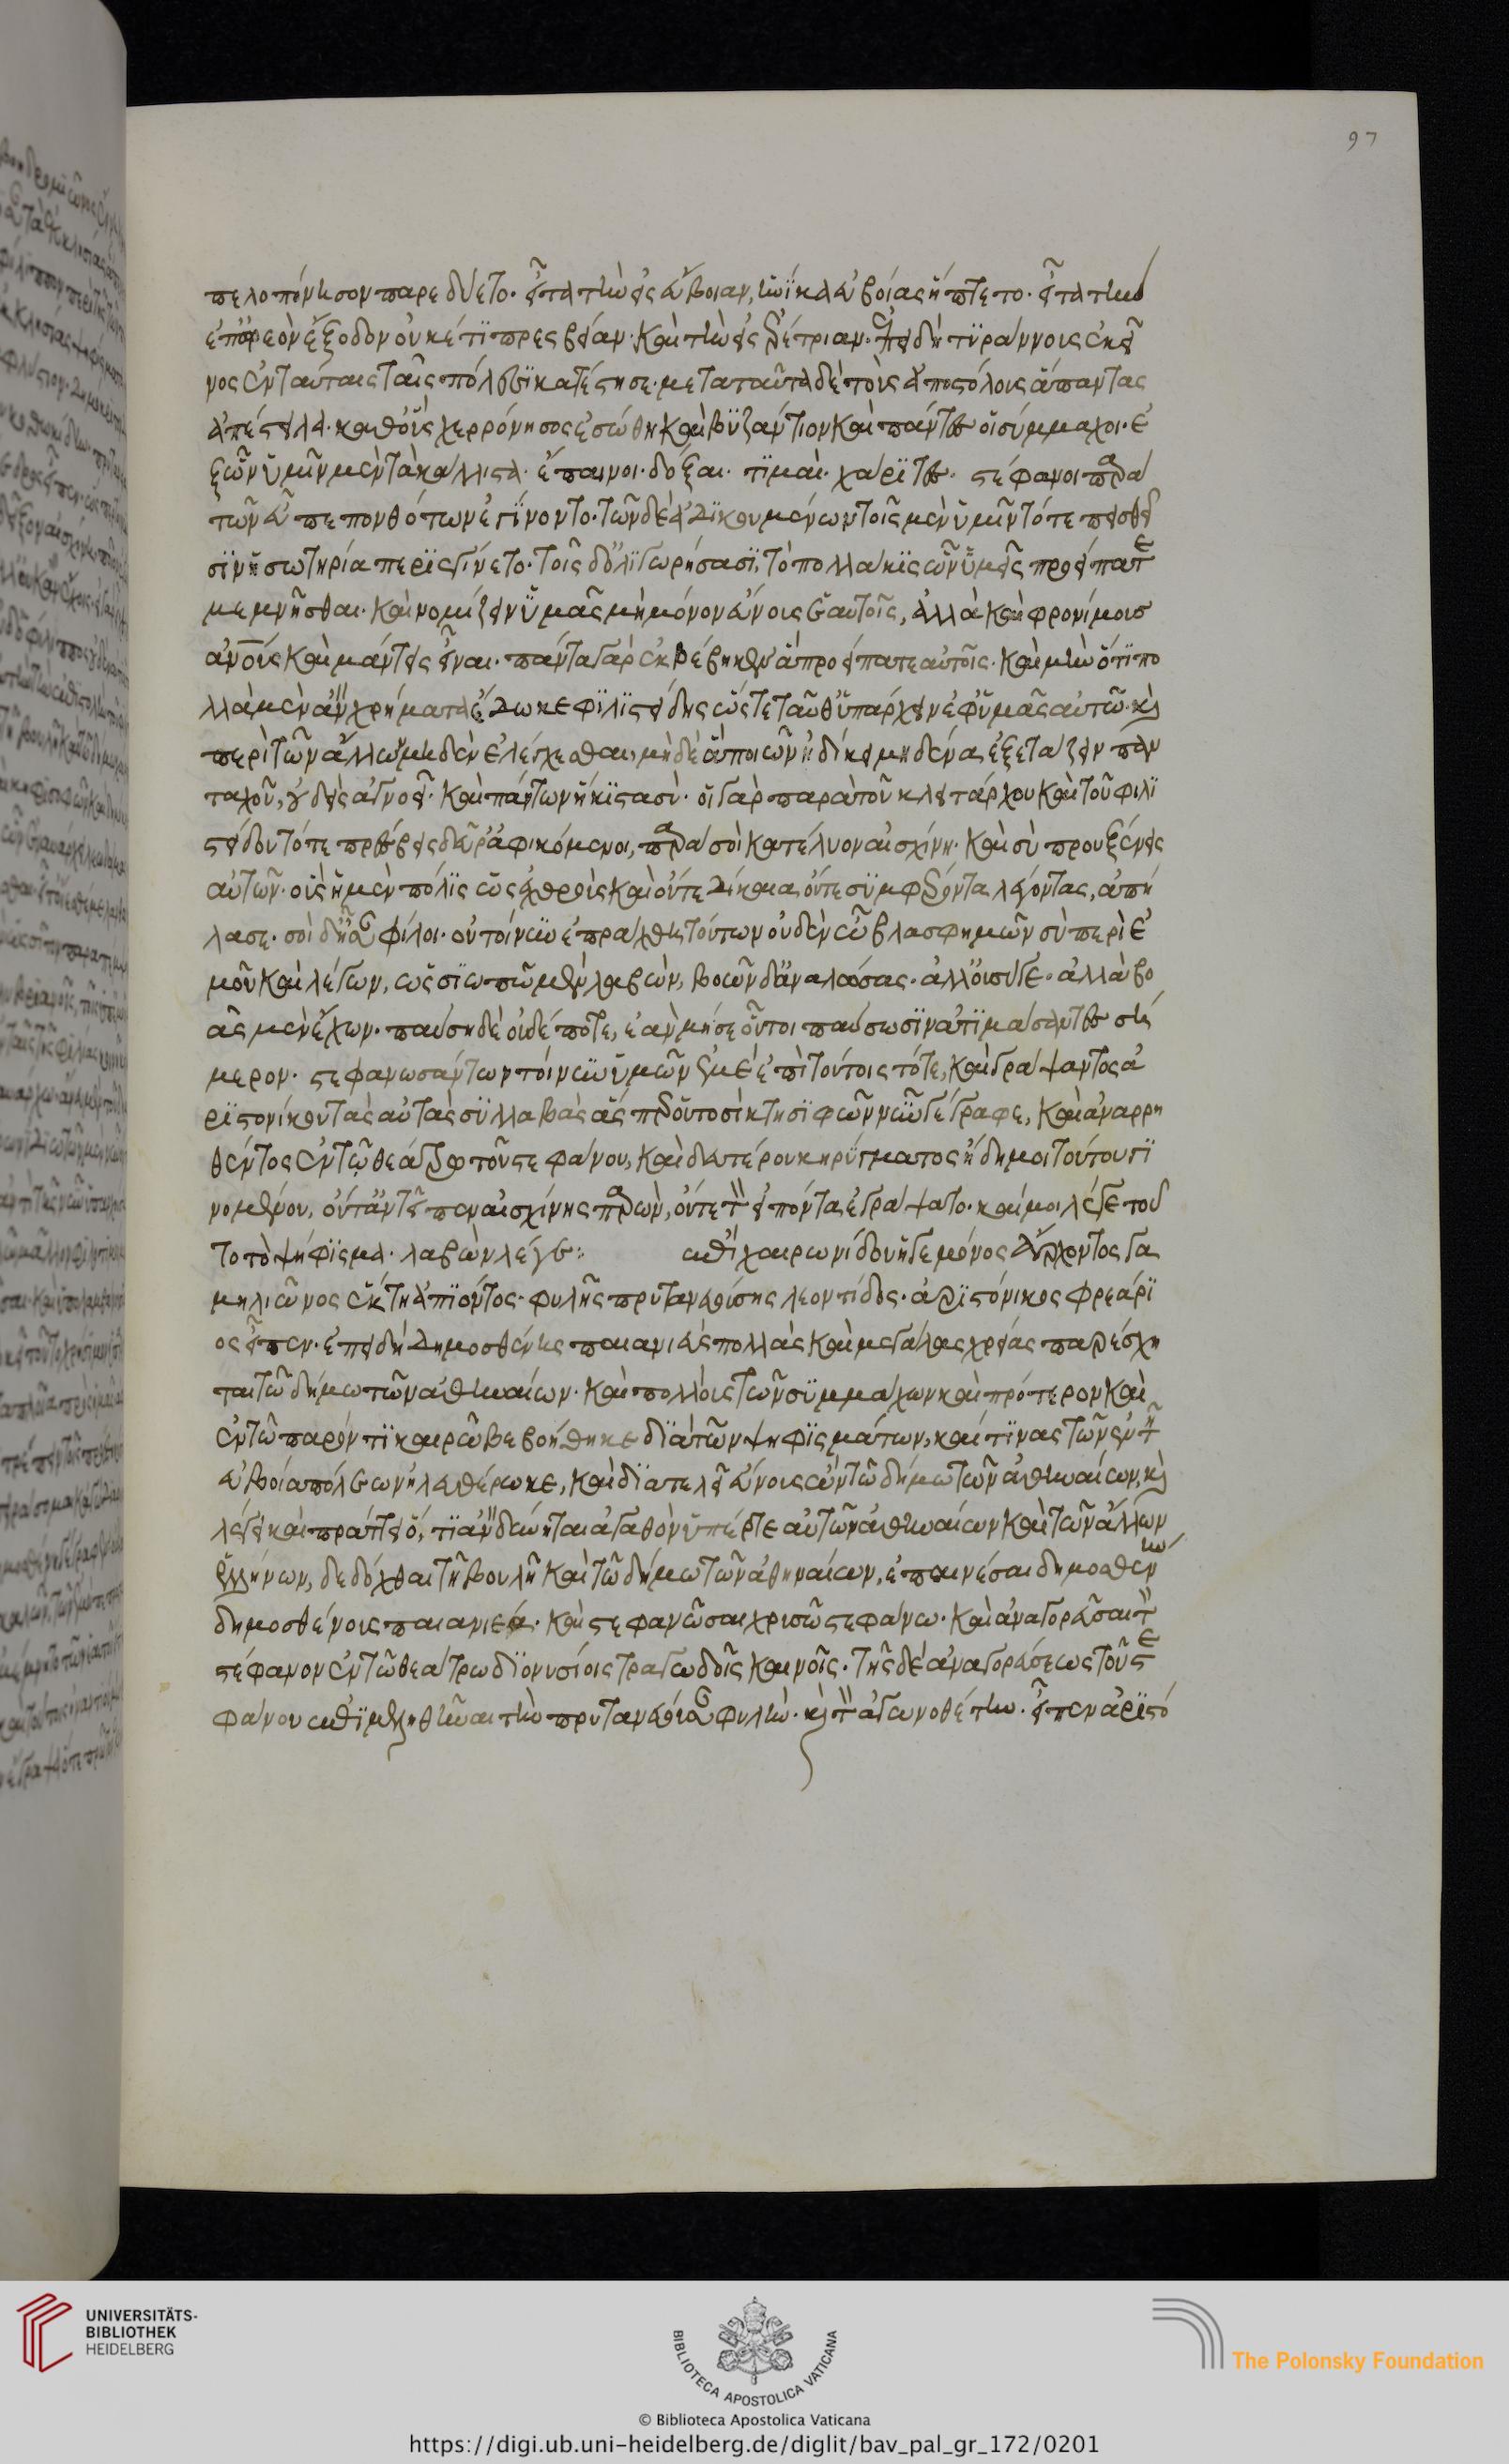 πελοπόνησον παρεδύετο· εἶτα τὴν εἰς εὔβοιαν, ἡνίκα εὐβοίας ἥπτετο· εἶτα τὴν
ἐπ' ὠρεὸν ἔξοδον οὐκέτι πρεσβείαν· καὶ τὴν εἰς ἐρέτριαν· ἐπειδὴ τυράννους ἐκεῖ
νος ἐν ταύταις ταῖς πόλεσι κατέστησε· μετὰ ταῦτα δὲ τοὺς ἀποστόλους ἅπαντας
ἀπέστειλα· καθ' οὓς χερρόνησος ἐσώθη καὶ βυζάντιον καὶ πάντες οἱ σύμμαχοι· ἐ
ξ ὧν ὑμῖν μὲν τὰ κάλλιστα· ἔπαινοι· δόξαι· τιμαὶ· χάριτες· στέφανοι παρὰ
τῶν εὖ πεπονθότων ἐγίνοντο· τῶν δὲ ἀδικουμένων τοῖς μὲν ὑμῖν τότε πεισθεῖ
σιν ἡ σωτηρία περιεγίνετο· τοῖς δ' ὀλιγωρήσασι, τὸ πολλάκις ὧν ὑμεῖς προείπατε
μεμνῆσθαι· καὶ νομίζειν ὑμᾶς μὴ μόνον εὔνους ἑαυτοῖς, ἀλλὰ καὶ φρονίμους
ἀνους καὶ μάντεις εἶναι· πάντα γὰρ ἐκβέβηκεν ἃ προείπατε αὐτοῖς· καὶ μὴν ὅτι πο
λλὰ μὲν ἂν χρήματα ἔδωκε φιλιστείδης ὥστε ταῦθ' ὑπάρχειν ἐφ' ὑμᾶς αὐτῶ· καὶ
περὶ τῶν ἄλλων μηδὲν ἐλέγχεσθαι, μηδὲ ἃ ποιῶν ἠδίκει μηδένα ἐξετάζειν παν
ταχοῦ, οὐδεὶς ἀγνοεῖ· καὶ πάντων ἥκιστα σὺ· οἱ γὰρ παρὰ τοῦ κλειτάρχου καὶ τοῦ φιλι
στείδου τότε πρέσβεις δεῦρ' ἀφικόμενοι, παρὰ σοὶ κατέλυον αἰσχίνη· καὶ σὺ προυξένεις
αὐτῶν· οὓς ἡ μὲν πόλις ὡς ἐχθροὺς καὶ οὔτε δίκαια, οὔτε συμφέροντα λέγοντας, ἀπή
λασε· σοὶ δ' ἦσαν φίλοι· οὐ τοίνυν ἐπράχθη τούτων οὐδὲν ὦ βλασφημῶν σὺ περὶ ἐ
μοῦ καὶ λέγων, ὡς σιωπῶ μὲν λαβὼν, βοῶ δ' ἀναλώσας· ἀλλ' οὐ σύ γε· ἀλλὰ βο
ᾶς μὲν ἔχων· παύση δὲ οὐδέποτε, ἐὰν μή σε οὗτοι παύσωσιν ἀτιμάσαντες σή
μερον· στεφανωσάντων τοίνυν ὑμῶν ἐμὲ ἐπὶ τούτοις τότε, καὶ γράψαντος ἀ
ριστονίκου τὰς αὐτὰς συλλαβὰς ἅσπερ οὑτοσὶ κτησιφῶν νῦν γέγραφε, καὶ ἀναρρη
θέντος ἐν τῷ θεάτρω τοῦ στεφάνου, καὶ δευτέρου κηρύγματος ἤδη μοι τούτου γι
νομένου, οὔτ' ἀντεῖπεν αἰσχίνης παρὼν, οὔτε τὸν εἰπόντα ἐγράψατο· καί μοι λέγε τοῦ
το τὸ ψήφισμα· λαβὼν λέγε: ἐπὶ χαιρωνίδου ἡγεμόνος ἄρχοντος γα
μηλιῶνος ἕκτη ἀπιόντος· φυλῆς πρυτανευούσης λεοντίδος· ἀριστόνικος φρεάρι
ος εἶπεν· ἐπειδὴ δημοσθένης παιανιεὺς πολλὰς καὶ μεγάλας χρείας παρέσχη
ται τῶ δήμω τῶν ἀθηναίων· καὶ πολλοῖς τῶν συμμάχων καὶ πρότερον καὶ
ἐν τῶ παρόντι καιρῶ βεβοήθηκε διὰ τῶν ψηφισμάτων, καί τινας τῶν ἐν τῆ
εὐβοία πόλεων ἠλευθέρωκε, καὶ διατελεῖ εὔνους ὢν τῶ δήμω τῶν ἀθηναίων, καὶ
λέγει καὶ πράττει ὅ,τι ἂν δύνηται ἀγαθὸν ὑπέρ τε αὐτῶν ἀθηναίων καὶ τῶν ἄλλων
ἑλλήνων, δεδόχθαι τῆ βουλῆ καὶ τῶ δήμω τῶν ἀθηναίων, ἐπαινέσαι δημοσθένην
δημοσθένους παιανιεά· καὶ στεφανῶσαι χρυσῶ στεφάνω· καὶ ἀναγορεῦσαι τὸν
στέφανον ἐν τῶ θεάτρω διονυσίοις τραγωδοῖς καινοῖς· τῆς δὲ ἀναγορεύσεως τοῦ στε
φάνου ἐπιμεληθῆναι τὴν πρυτανεύουσαν φυλὴν· καὶ τὸν ἀγωνοθέτην· εἶπεν ἀριστό
97
UNIVERSITÄTS-
BIBLIOTHEK
HEIDELBERG
BIBLIOTECA APOSTOLICA VATICANA
The Polonsky Foundation
© Biblioteca Apostolica Vaticana
https://digi.ub.uni-heidelberg.de/diglit/bav_pal_gr_172/0201